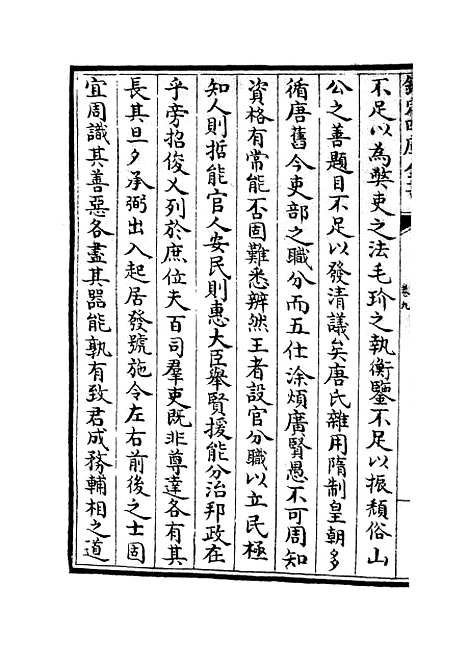 欽定四庫全書
卷九
不足以為獘吏之法毛玠之執衡鑒不足以振頽俗山
公之善題目不足以發清議矣唐氏雜用隋制皇朝多
循唐舊今吏部之職分而五仕涂煩廣賢愚不可周知
資格有常能否固難悉辨然王者設官分職以立民極
知人則哲能官人安民則惠大臣舉賢援能分治邦政在
乎旁招俊乂列於庶位夫百司羣吏既非尊達各有其
長其旦夕承弼出入起居發號施令左右前後之士固
宜周識其善惡各盡其器能孰有致君成務輔相之道